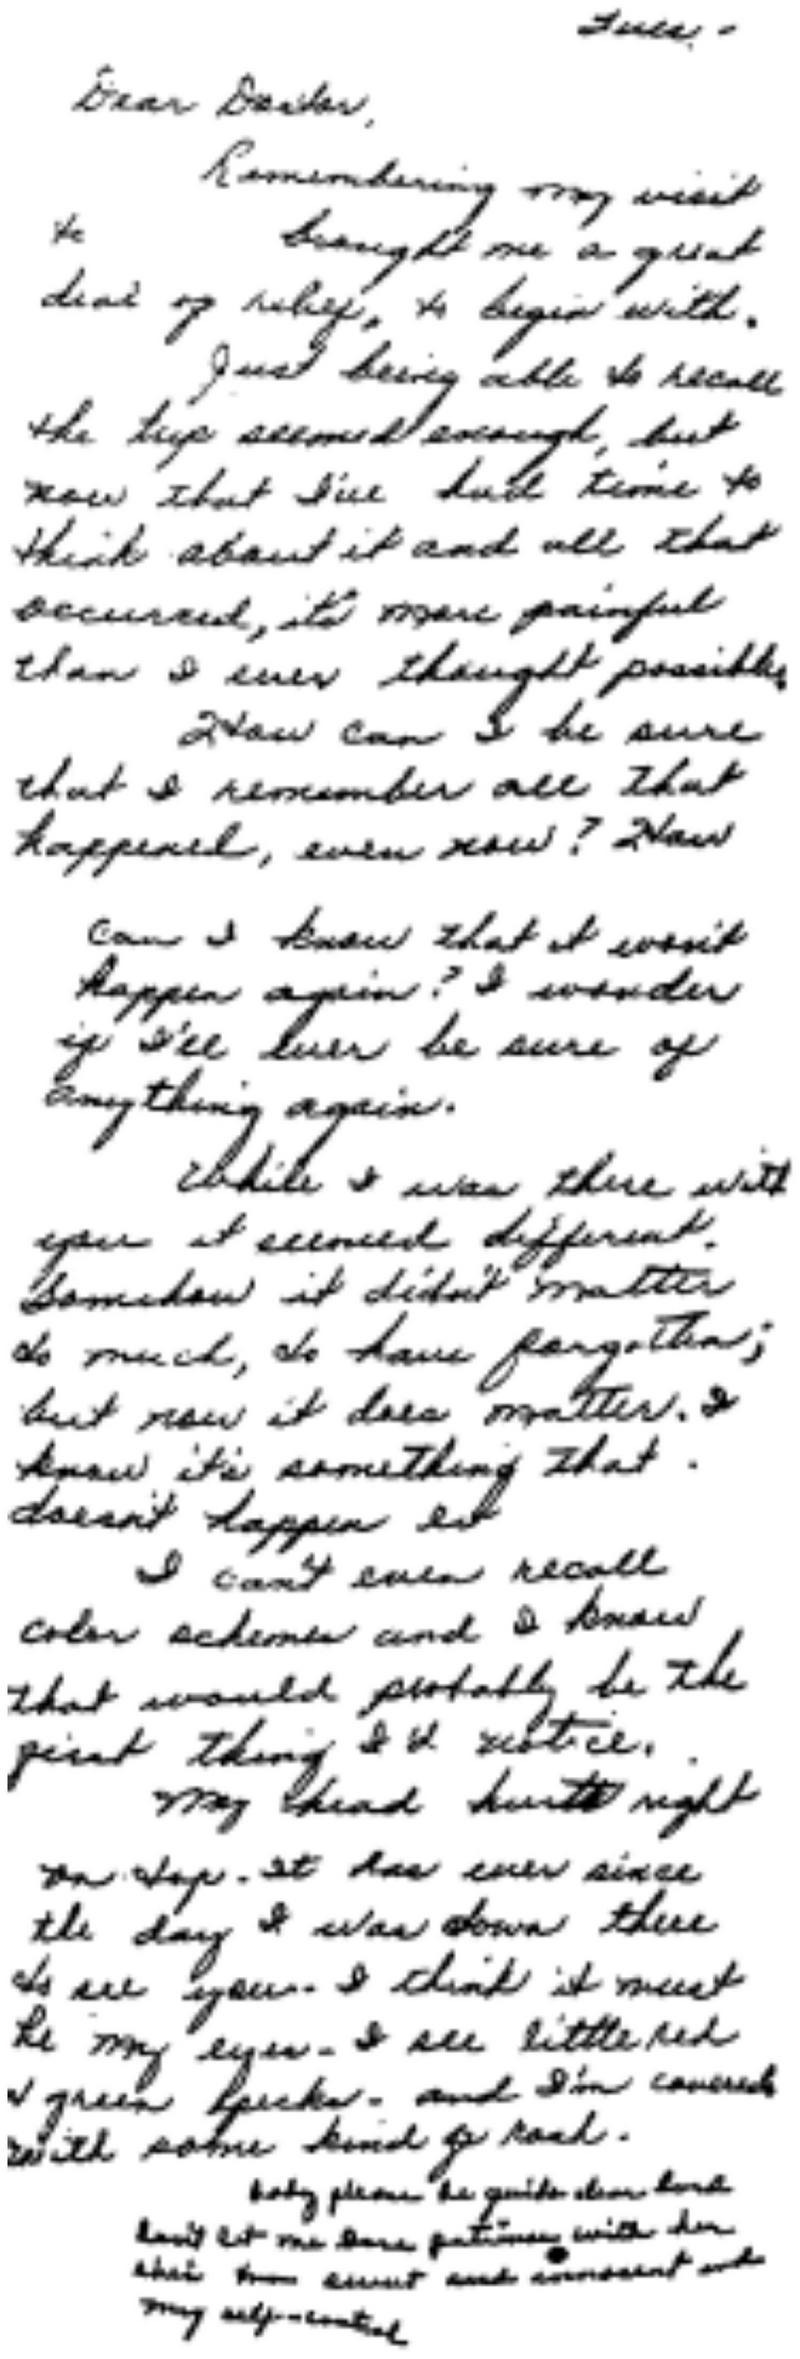 Tues. -
Dear Doctor,
Remembering my visit
to brought me a great
deal of relief, to begin with.
Just being able to recall
the trip seemed enough, but
now that I've had time to
think about it and all that
occurred, it's more painful
than I ever thought possible.
How can I be sure
that I remember all that
happened, even now? How
can I know that it won't
happen again? I wonder
if I'll ever be sure of
anything again.
While I was there with
you it seemed different.
Somehow it didn't matter
so much, to have forgotten;
but now it does matter. I
know it's something that
doesn't happen
I can't even recall
color schemes and I know
that would probably be the
first thing I'd notice.
My head hurts right
on top. It has ever since
the day I was down there
to see you - I think it must
be my eyes - I see little red
& green specks - and I'm covered
with some kind of rash.
baby please be quite dear lord
don't let me lose patience with her
she's too sweet and innocent and
my self-control